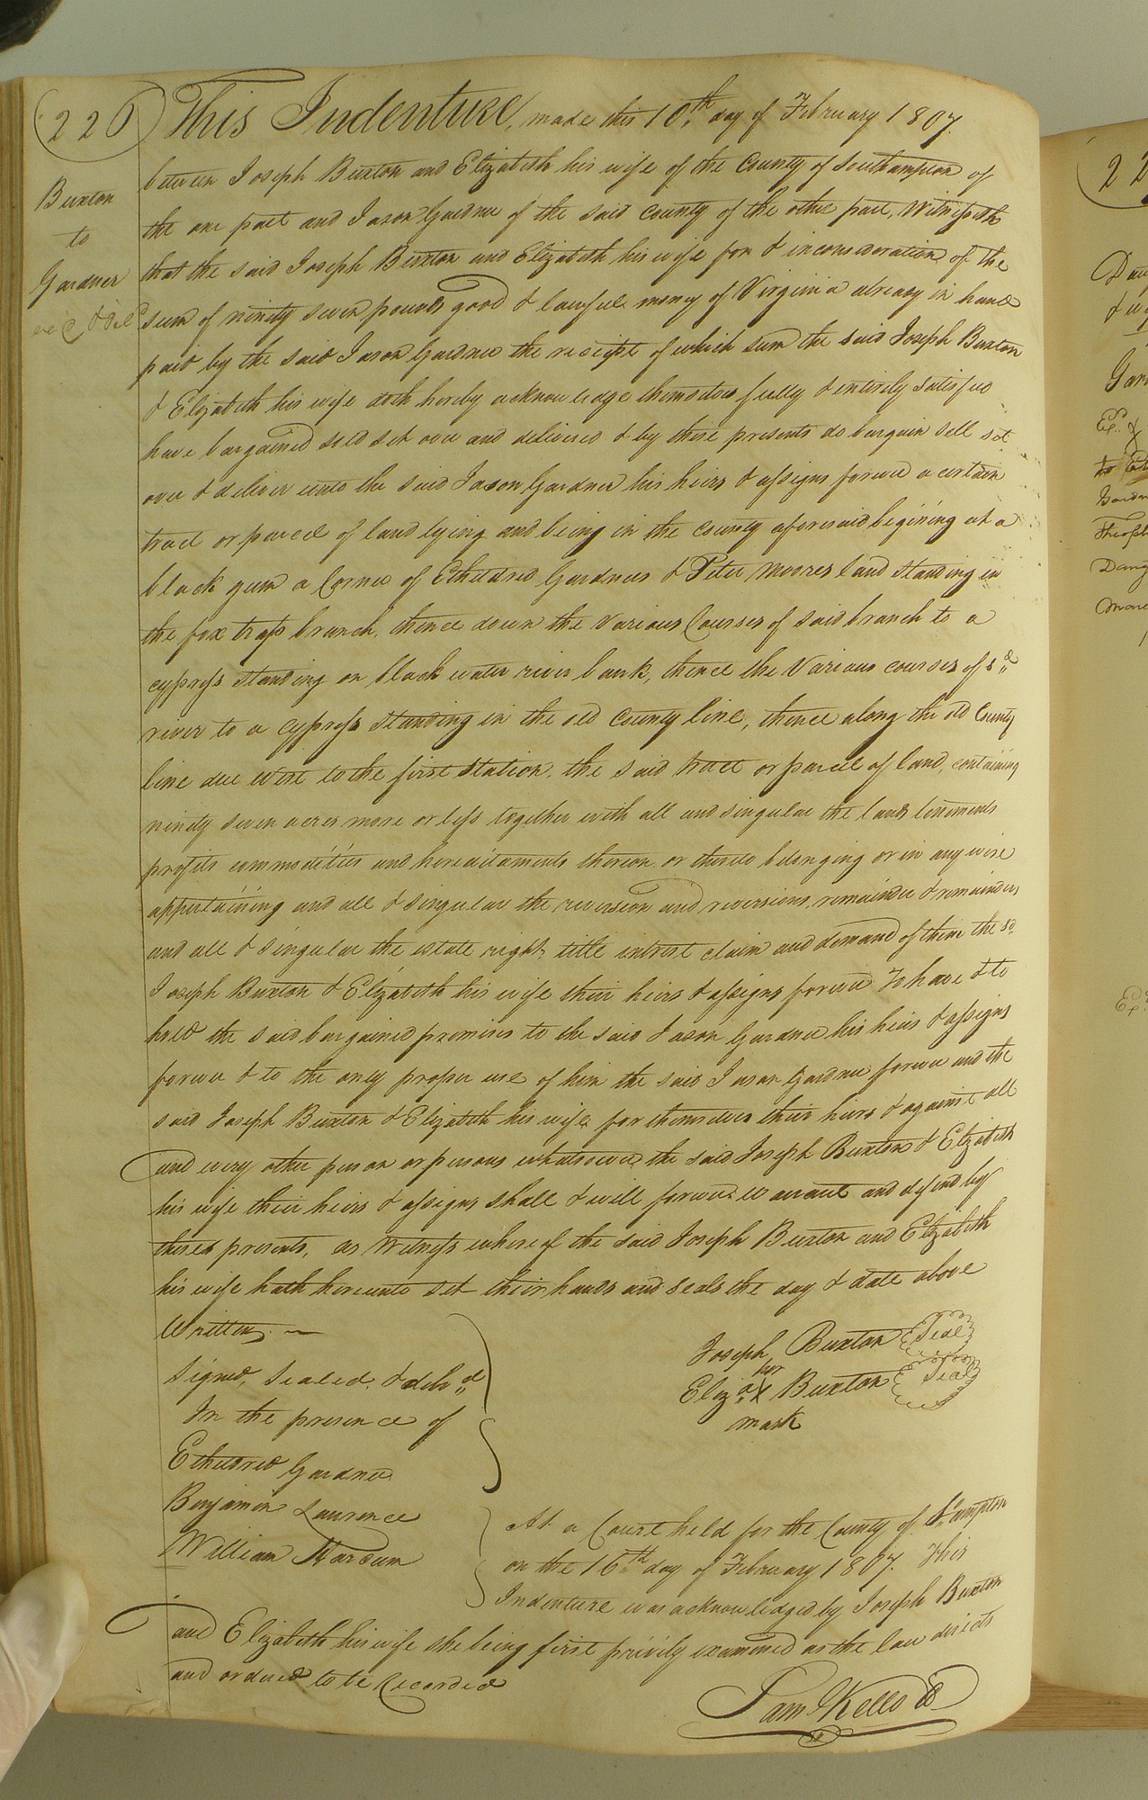 226
This Indenture, made this 10th day of February 1807.
Buxton
to
Gardner
between Joseph Buxton and Elizabeth his wife of the County of Southampton of
the one part and Jason Gardner of the said county of the other part, Witnesseth
that the said Joseph Buxton and Elizabeth his wife for & inconsideration of the
sum of ninety seven pounds good & lawfull money of Virginia already in hand
paid by the said Jason Gardner the receipt of which sum the said Joseph Buxton
& Elizabeth his wife doth hereby acknowledge themselves fully & entirely satisfied
have bargained sold set over and delivered & by these presents do bargain sell set
over & deliver unto the said Jason Gardner his heirs & assigns forever a certain
tract or parcel of land lying and being in the county aforesaid begining at a
black gum a Corner of Etheldred Gardners & Peter Moores land standing in
the fox traps branch, thence down the Various Courses of said branch to a
cypress standing on black water river bank, thence the Various courses of sd
river to a cypress standing in the old county line, thence along the old County
line due West to the first station, the said tract or parcel of land, containing
ninety seven acres more or less together with all and singular the lands tenements
profits commodities and hereditaments thereon or thereto belonging or in any wise
appertaining and all & singular the reversion and reversions, remainder & remainders
and all & singular the estate right, title interest claim and demand of them the sd
Joseph Buxton & Elizabeth his wife their heirs & assigns forever To have & to
hold the said bargained premises to the said Jason Gardner his heirs & assigns
forever & to the only proper use of him the said Jason Gardner forever and the
said Joseph Buxton & Elizabeth his wife for themselves their heirs & against all
and every other person or persons whatsoever the said Joseph Buxton & Elizabeth
his wife their heirs & assigns shall & will forever warrant and defend by
these presents, as Witness whereof the said Joseph Buxton and Elizabeth
his wife hath hereunto set their hands and seals the day & date above
Written.
Signed, Sealed, & delivd
In the presence of
Etheldred Gardner
Benjamin Lawrence
William Harcum
Joseph Buxton Seal
her
Eliza X Buxton Seal
mark
At a Court held for the County of S.ampton
on the 16th day of February 1807. This
Indenture was acknowledged by Joseph Buxton
and Elizabeth his wife she being first privily examined as the law directs
and ordered to be Recorded
Saml Kello
22